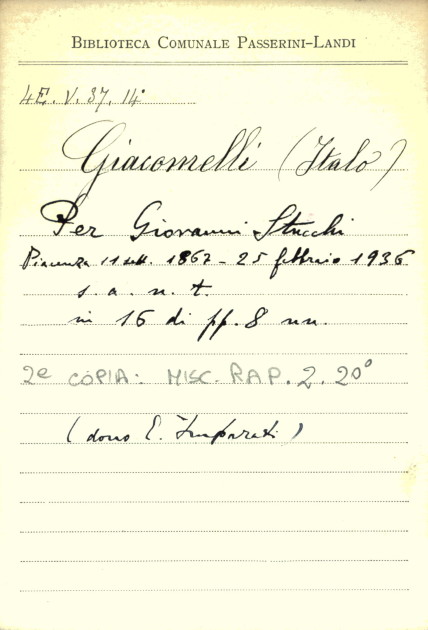 BIBLIOTECA COMUNALE PASSERINI-LANDI
4E. V. 37. 14°
Giacomelli (Italo)
Per Giovanni Stucchi
Piacenza 11 sett. 1867 - 25 febbraio 1936
s. a. n. t.
in 16 di pp. 8 nn.
2e COPIA: MISC. RAP. 2. 20°
(dono E. Imparati)